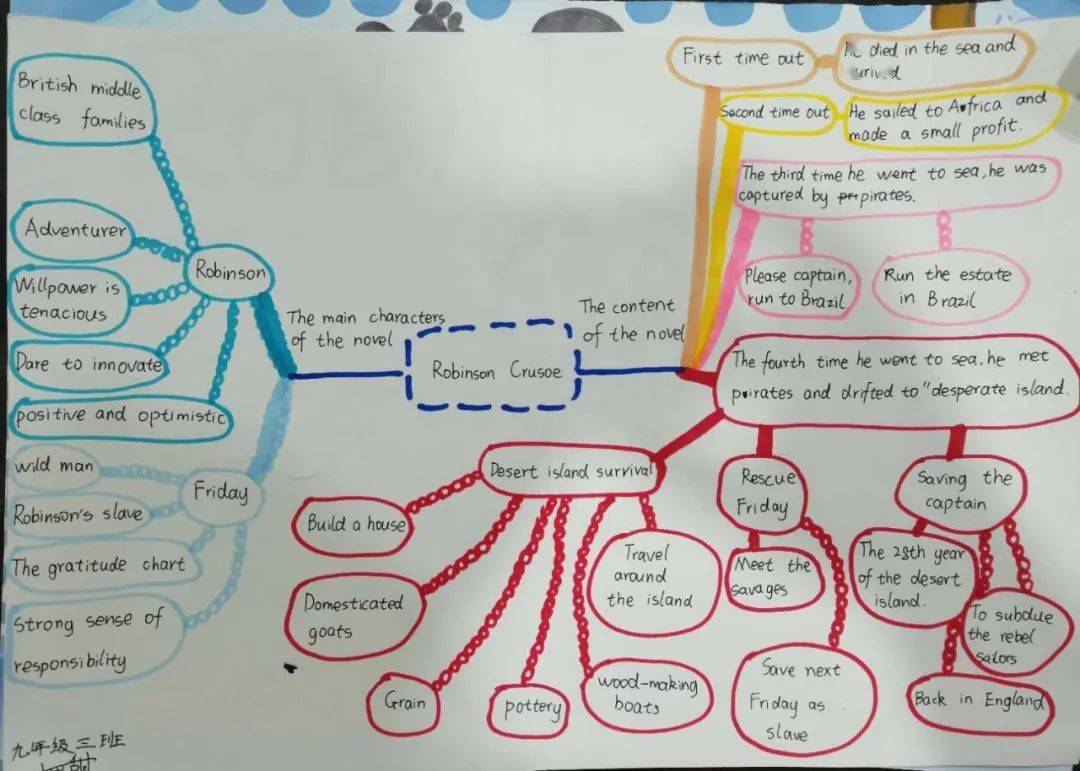 British middle
class families
Adventurer
Willpower is
tenacious
Dare to innovate
positive and optimistic
Robinson
wild man
Robinson's slave
The gratitude chart
Strong sense of
responsibility
Friday
The main characters
of the novel
Robinson Crusoe
The content
of the novel
First time out
died in the sea and
Second time out
He sailed to Africa and
made a small profit.
The third time he went to sea, he was
captured by pirates.
Please captain,
run to Brazil
Run the estate
in Brazil
The fourth time he went to sea, he met
pirates and drifted to "desperate island.
Desert island survival
Build a house
Domesticated
goats
Grain
pottery
wood-making
boats
Travel
around
the island
Rescue
Friday
Meet the
savages
Save next
Friday as
slave
Saving the
captain
The 28th year
of the desert
island.
To subdue
the rebel
sailors
Back in England
九年级三班